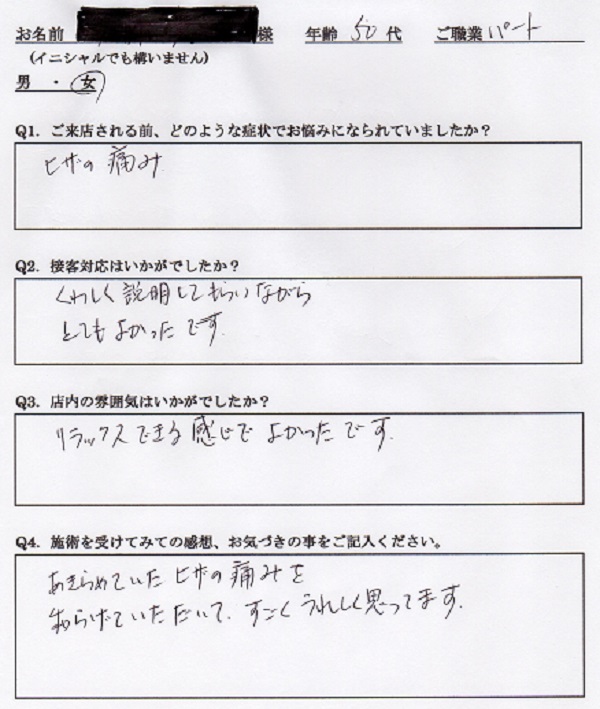 お名前 様 年齢 50 代 ご職業 パート
(イニシャルでも構いません)
男 ・ 女
Q1. ご来店される前、どのような症状でお悩みになられていましたか?
ヒザの痛み
Q2. 接客対応はいかがでしたか?
くわしく説明してもらいながら
とてもよかったです。
Q3. 店内の雰囲気はいかがでしたか?
リラックスできる感じでよかったです。
Q4. 施術を受けてみての感想、お気づきの事をご記入ください。
あきらめていたヒザの痛みを
和らげていただいて、すごくうれしく思ってます。